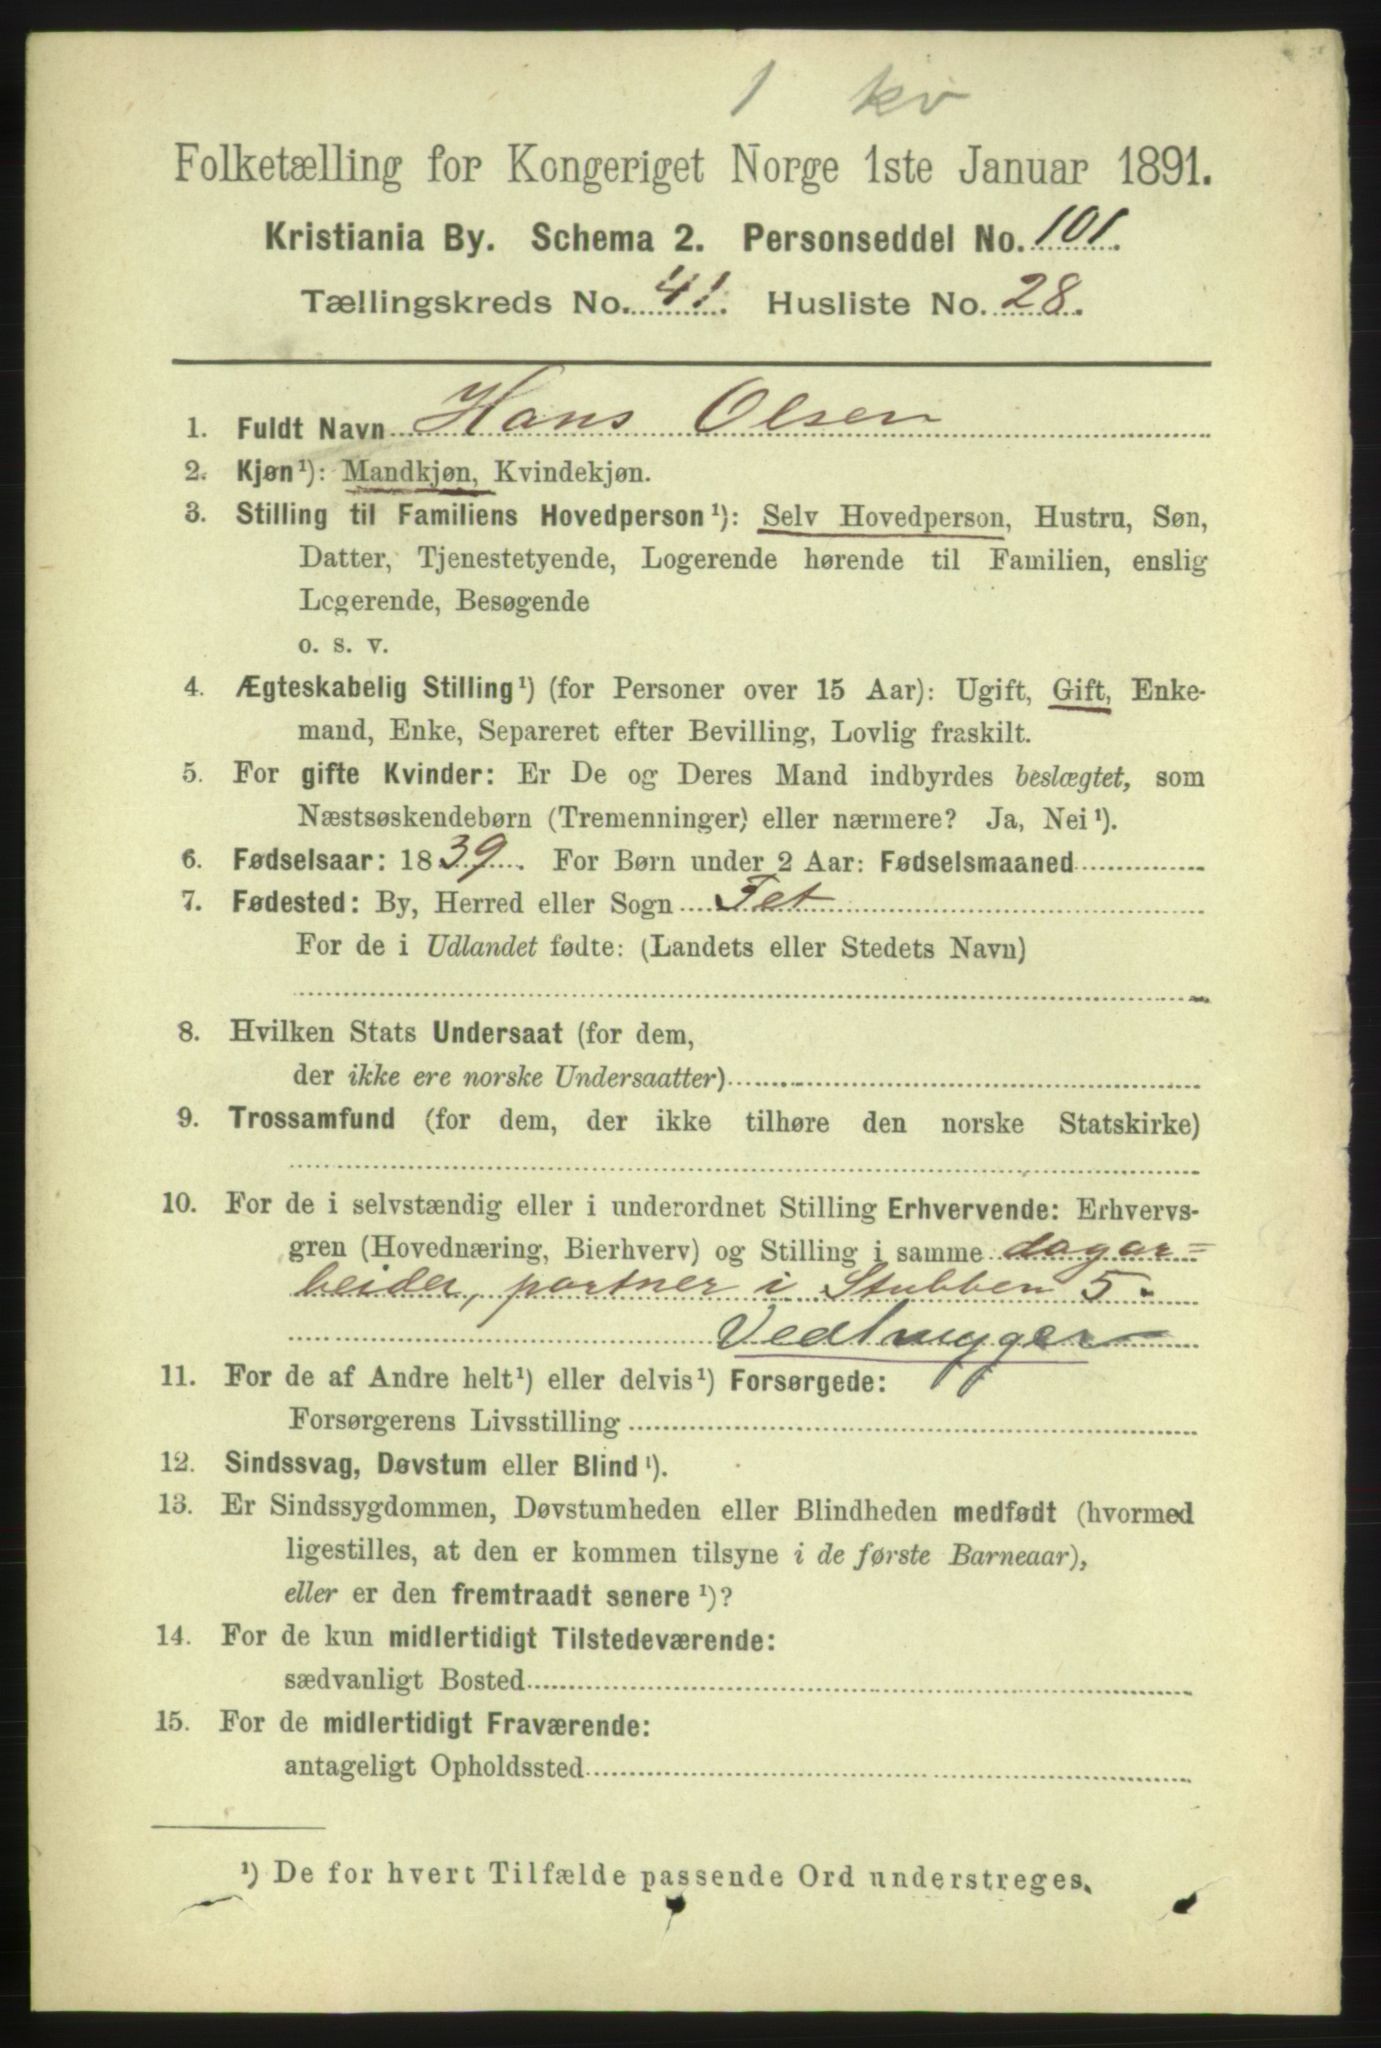 1 kv
Folketælling for Kongeriget Norge 1ste Januar 1891.
Kristiania By. Schema 2. Personseddel No. 101.
Tællingskreds No. 41. Husliste No. 28.
1. Fuldt Navn Hans Olsen
2. Kjøn¹): Mandkjøn, Kvindekjøn.
3. Stilling til Familiens Hovedperson¹): Selv Hovedperson, Hustru, Søn,
Datter, Tjenestetyende, Logerende hørende til Familien, enslig
Logerende, Besøgende
o. s. v.
4. Ægteskabelig Stilling¹) (for Personer over 15 Aar): Ugift, Gift, Enke-
mand, Enke, Separeret efter Bevilling, Lovlig fraskilt.
5. For gifte Kvinder: Er De og Deres Mand indbyrdes beslægtet, som
Næstsøskendebørn (Tremenninger) eller nærmere? Ja, Nei¹).
6. Fødselsaar: 1839. For Børn under 2 Aar: Fødselsmaaned
7. Fødested: By, Herred eller Sogn Fet
For de i Udlandet fødte: (Landets eller Stedets Navn)
8. Hvilken Stats Undersaat (for dem,
der ikke ere norske Undersaatter)
9. Trossamfund (for dem, der ikke tilhøre den norske Statskirke)
10. For de i selvstændig eller i underordnet Stilling Erhvervende: Erhvervs-
gren (Hovednæring, Bierhverv) og Stilling i samme dagar=
beider, portner i Stubben 5.
Vedhugger
11. For de af Andre helt¹) eller delvis¹) Forsørgede:
Forsørgerens Livsstilling
12. Sindssvag, Døvstum eller Blind¹).
13. Er Sindssygdommen, Døvstumheden eller Blindheden medfødt (hvormed
ligestilles, at den er kommen tilsyne i de første Barneaar),
eller er den fremtraadt senere¹)?
14. For de kun midlertidigt Tilstedeværende:
sædvanligt Bosted
15. For de midlertidigt Fraværende:
antageligt Opholdssted
¹) De for hvert Tilfælde passende Ord understreges.